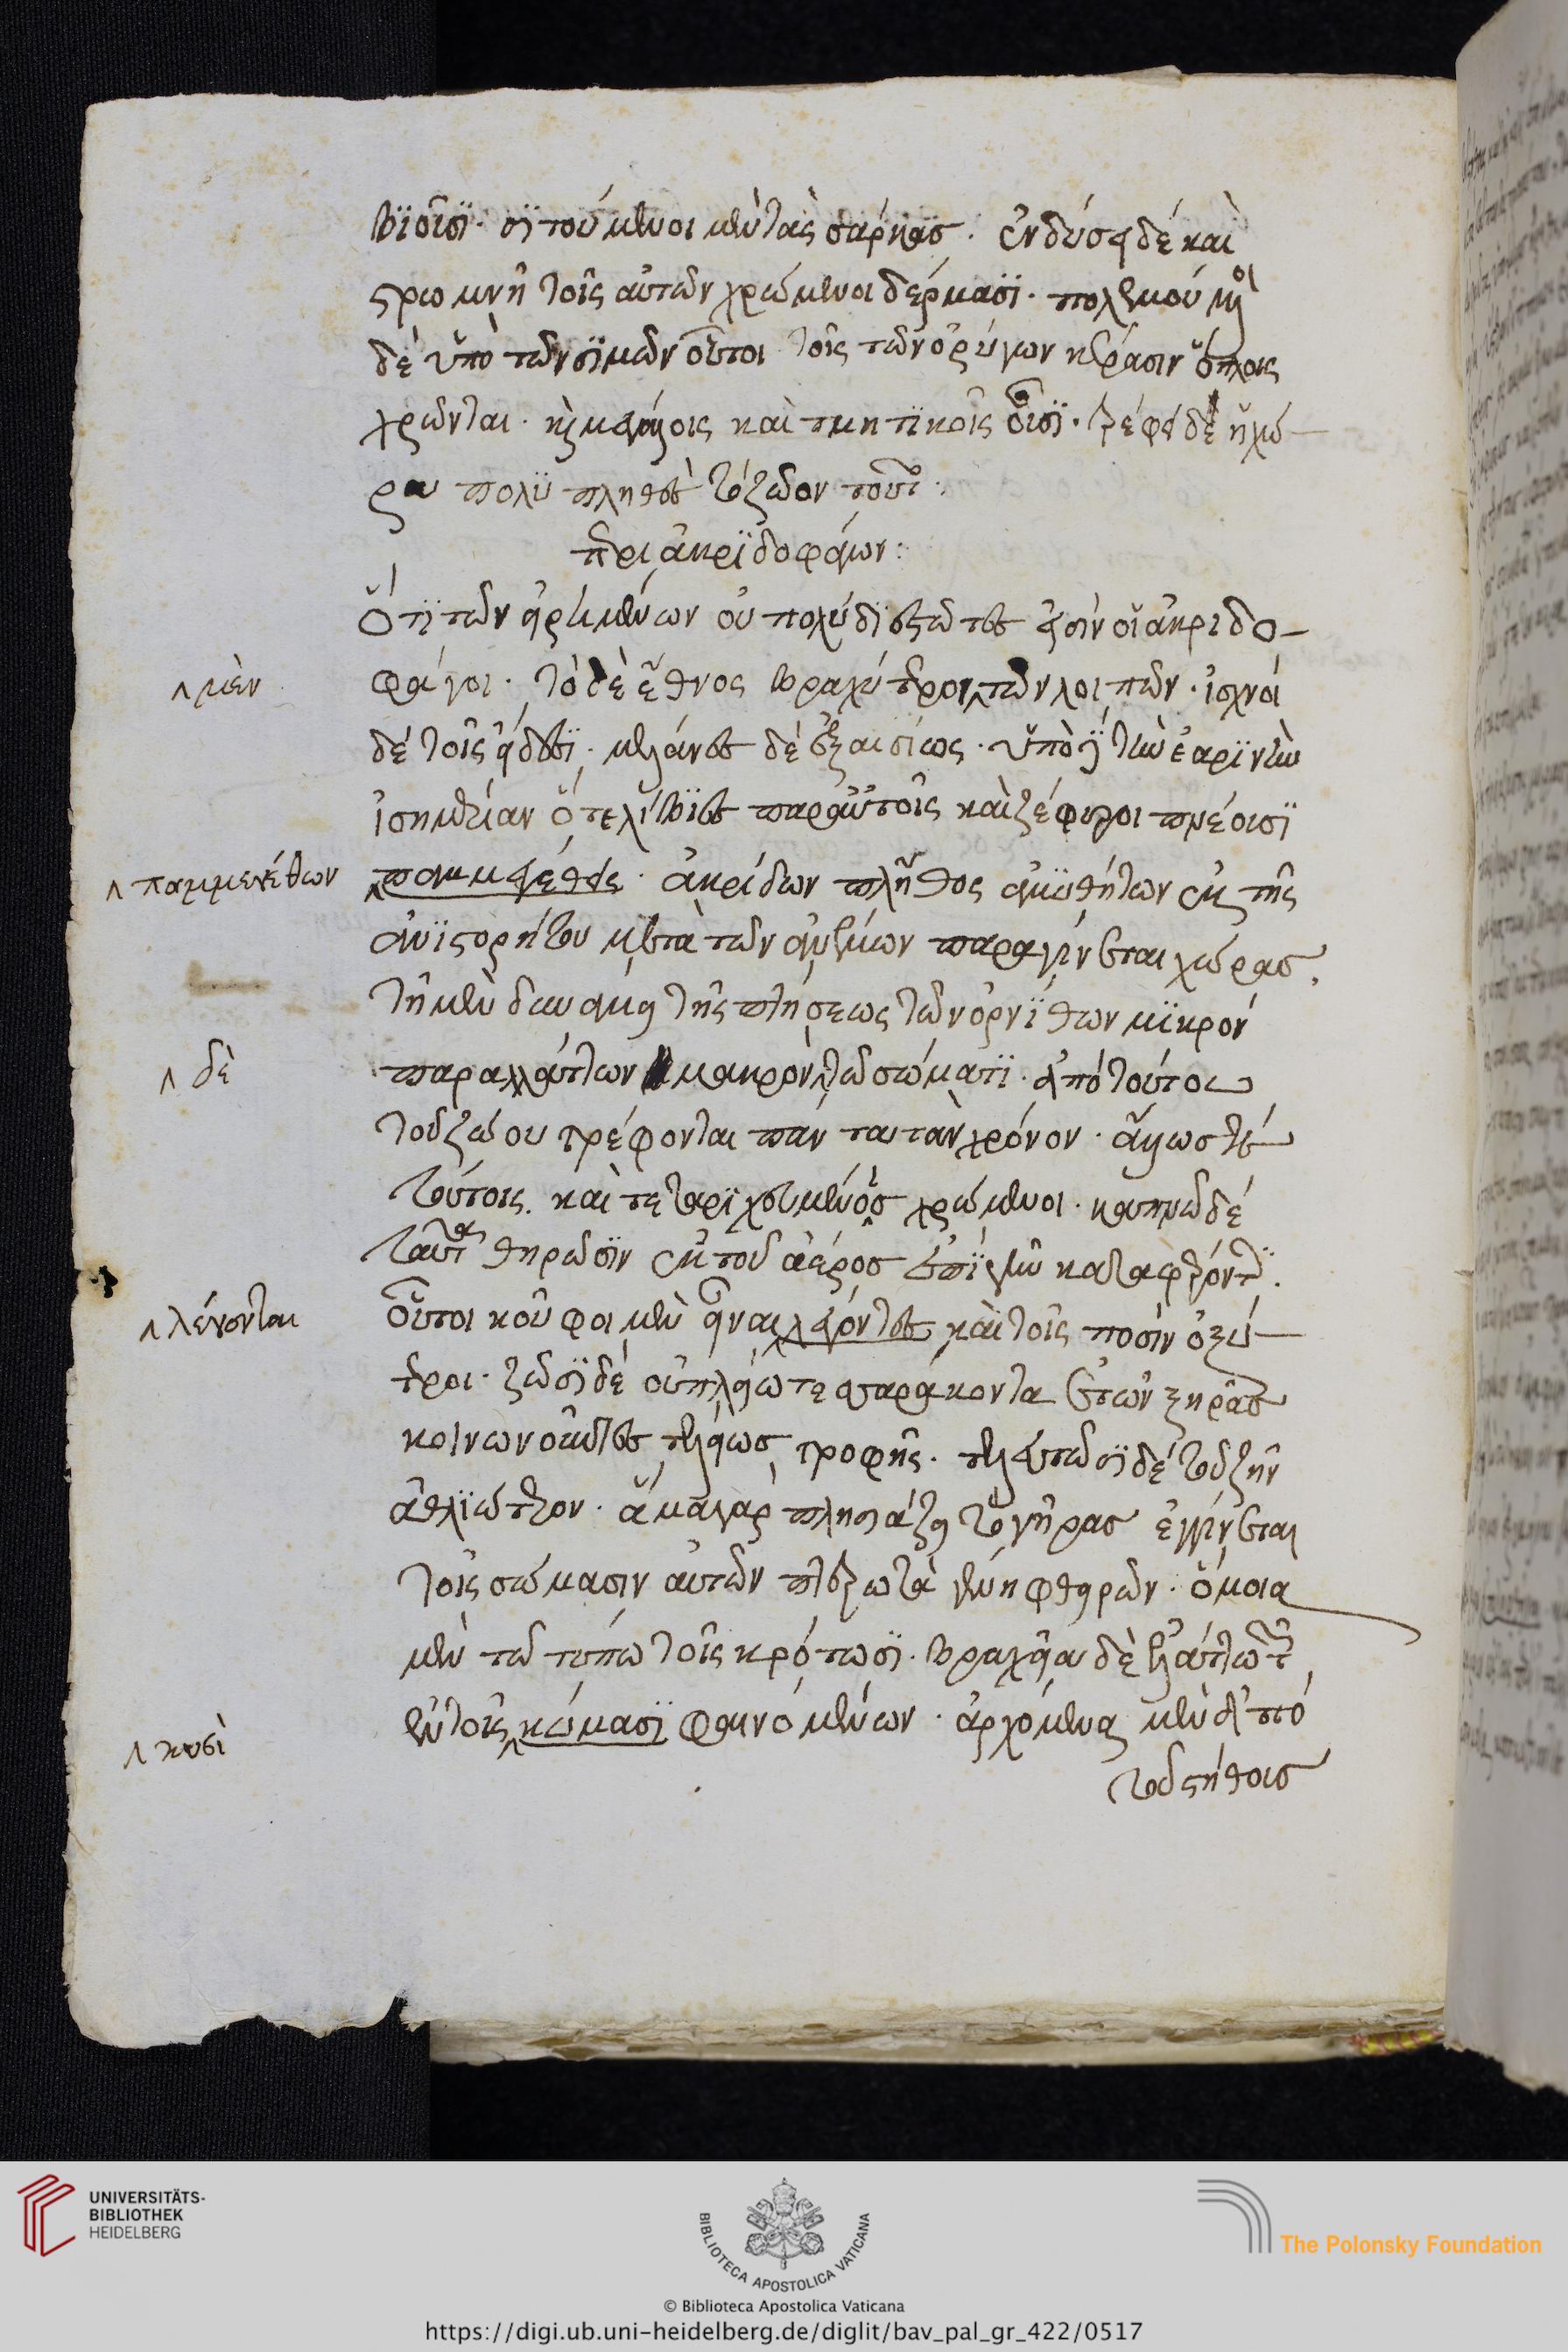 βιοῦσι· σιτούμενοι μὲν τὰς σάρκας. ἐνδύσει δὲ καὶ
στρωμνῇ τοῖς αὐτῶν χρώμενοι δέρμασι· πολεμούμενοι
δὲ ὑπὸ τῶν σιμῶν οὗτοι τοῖς τῶν ὀρύγων κέρασιν ὅπλοις
χρῶνται· μεγάλοις καὶ τμητικοῖς οὖσι· τρέφει δὲ ἡ χώ-
ρα πολὺ πλῆθος τὸ ζῶον τοῦτο:
περὶ ἀκριδοφάγων:
Ὅτι τῶν εἰρημένων οὐ πολὺ διεστῶτες εἰσὶν οἱ ἀκριδο-
φάγοι· τὸ δὲ ἔθνος βραχύτερον τῶν λοιπῶν· ἰσχνοὶ
^ μὲν
δὲ τοῖς εἴδεσι· μέλανες δὲ ἐξαισίως· ὑπὸ γὰρ τὴν ἐαρινὴν
ἰσημερίαν ὅτε λίβες παρ' αὐτοῖς καὶ ζέφυροι πνέουσι
^ παμμεγέθων
παμμεγέθεις· ἀκρίδων πλῆθος ἀμυθήτων ἐκ τῆς
ἀνιστορήτου μετὰ τῶν ἀνέμων παραγίνεται χώρας.
τῇ μὲν δυνάμει τῆς πτήσεως τῶν ὀρνίθων μικρὸν
^ δὲ
παραλλάττων μακρὸν τῷ σώματι· ἀπὸ τούτου
τοῦ ζώου τρέφονται πάντα τὸν χρόνον· ἄλλως τε
τούτοις καὶ τεταριχευμένοις χρώμενοι· καπνῷ δὲ
ταῦτα θηρῶσιν ἐκ τοῦ ἀέρος ἐπὶ γῆν καταφέροντες.
^ λέγονται
οὗτοι κοῦφοι μὲν εἶναι λέγοντες καὶ τοῖς ποσὶν ὀξύ-
τεροι· ζῶσι δὲ οὐ πλείω τεσσαράκοντα ἐτῶν ξηρᾶς
κοινωνοῦντες τελείως τροφῆς· τελευτῶσι δὲ τοῦ ζῆν
ἀθλιώτερον· ἅμα γὰρ πλησιάζει τὸ γῆρας ἐγγίνεται
τοῖς σώμασιν αὐτῶν πτερωτὰ γένη φθειρῶν· ὅμοια
μὲν τῷ τύπῳ τοῖς κρότωσι· βραχεῖα δὲ ἐλάττω τῶν
^ κυσὶ
ἐν τοῖς κώμασι φαινομένων· ἀρχόμενα μὲν ἀπὸ
τοῦ στήθους
UNIVERSITÄTS-
BIBLIOTHEK
HEIDELBERG
BIBLIOTECA APOSTOLICA VATICANA
The Polonsky Foundation
© Biblioteca Apostolica Vaticana
https://digi.ub.uni-heidelberg.de/diglit/bav_pal_gr_422/0517